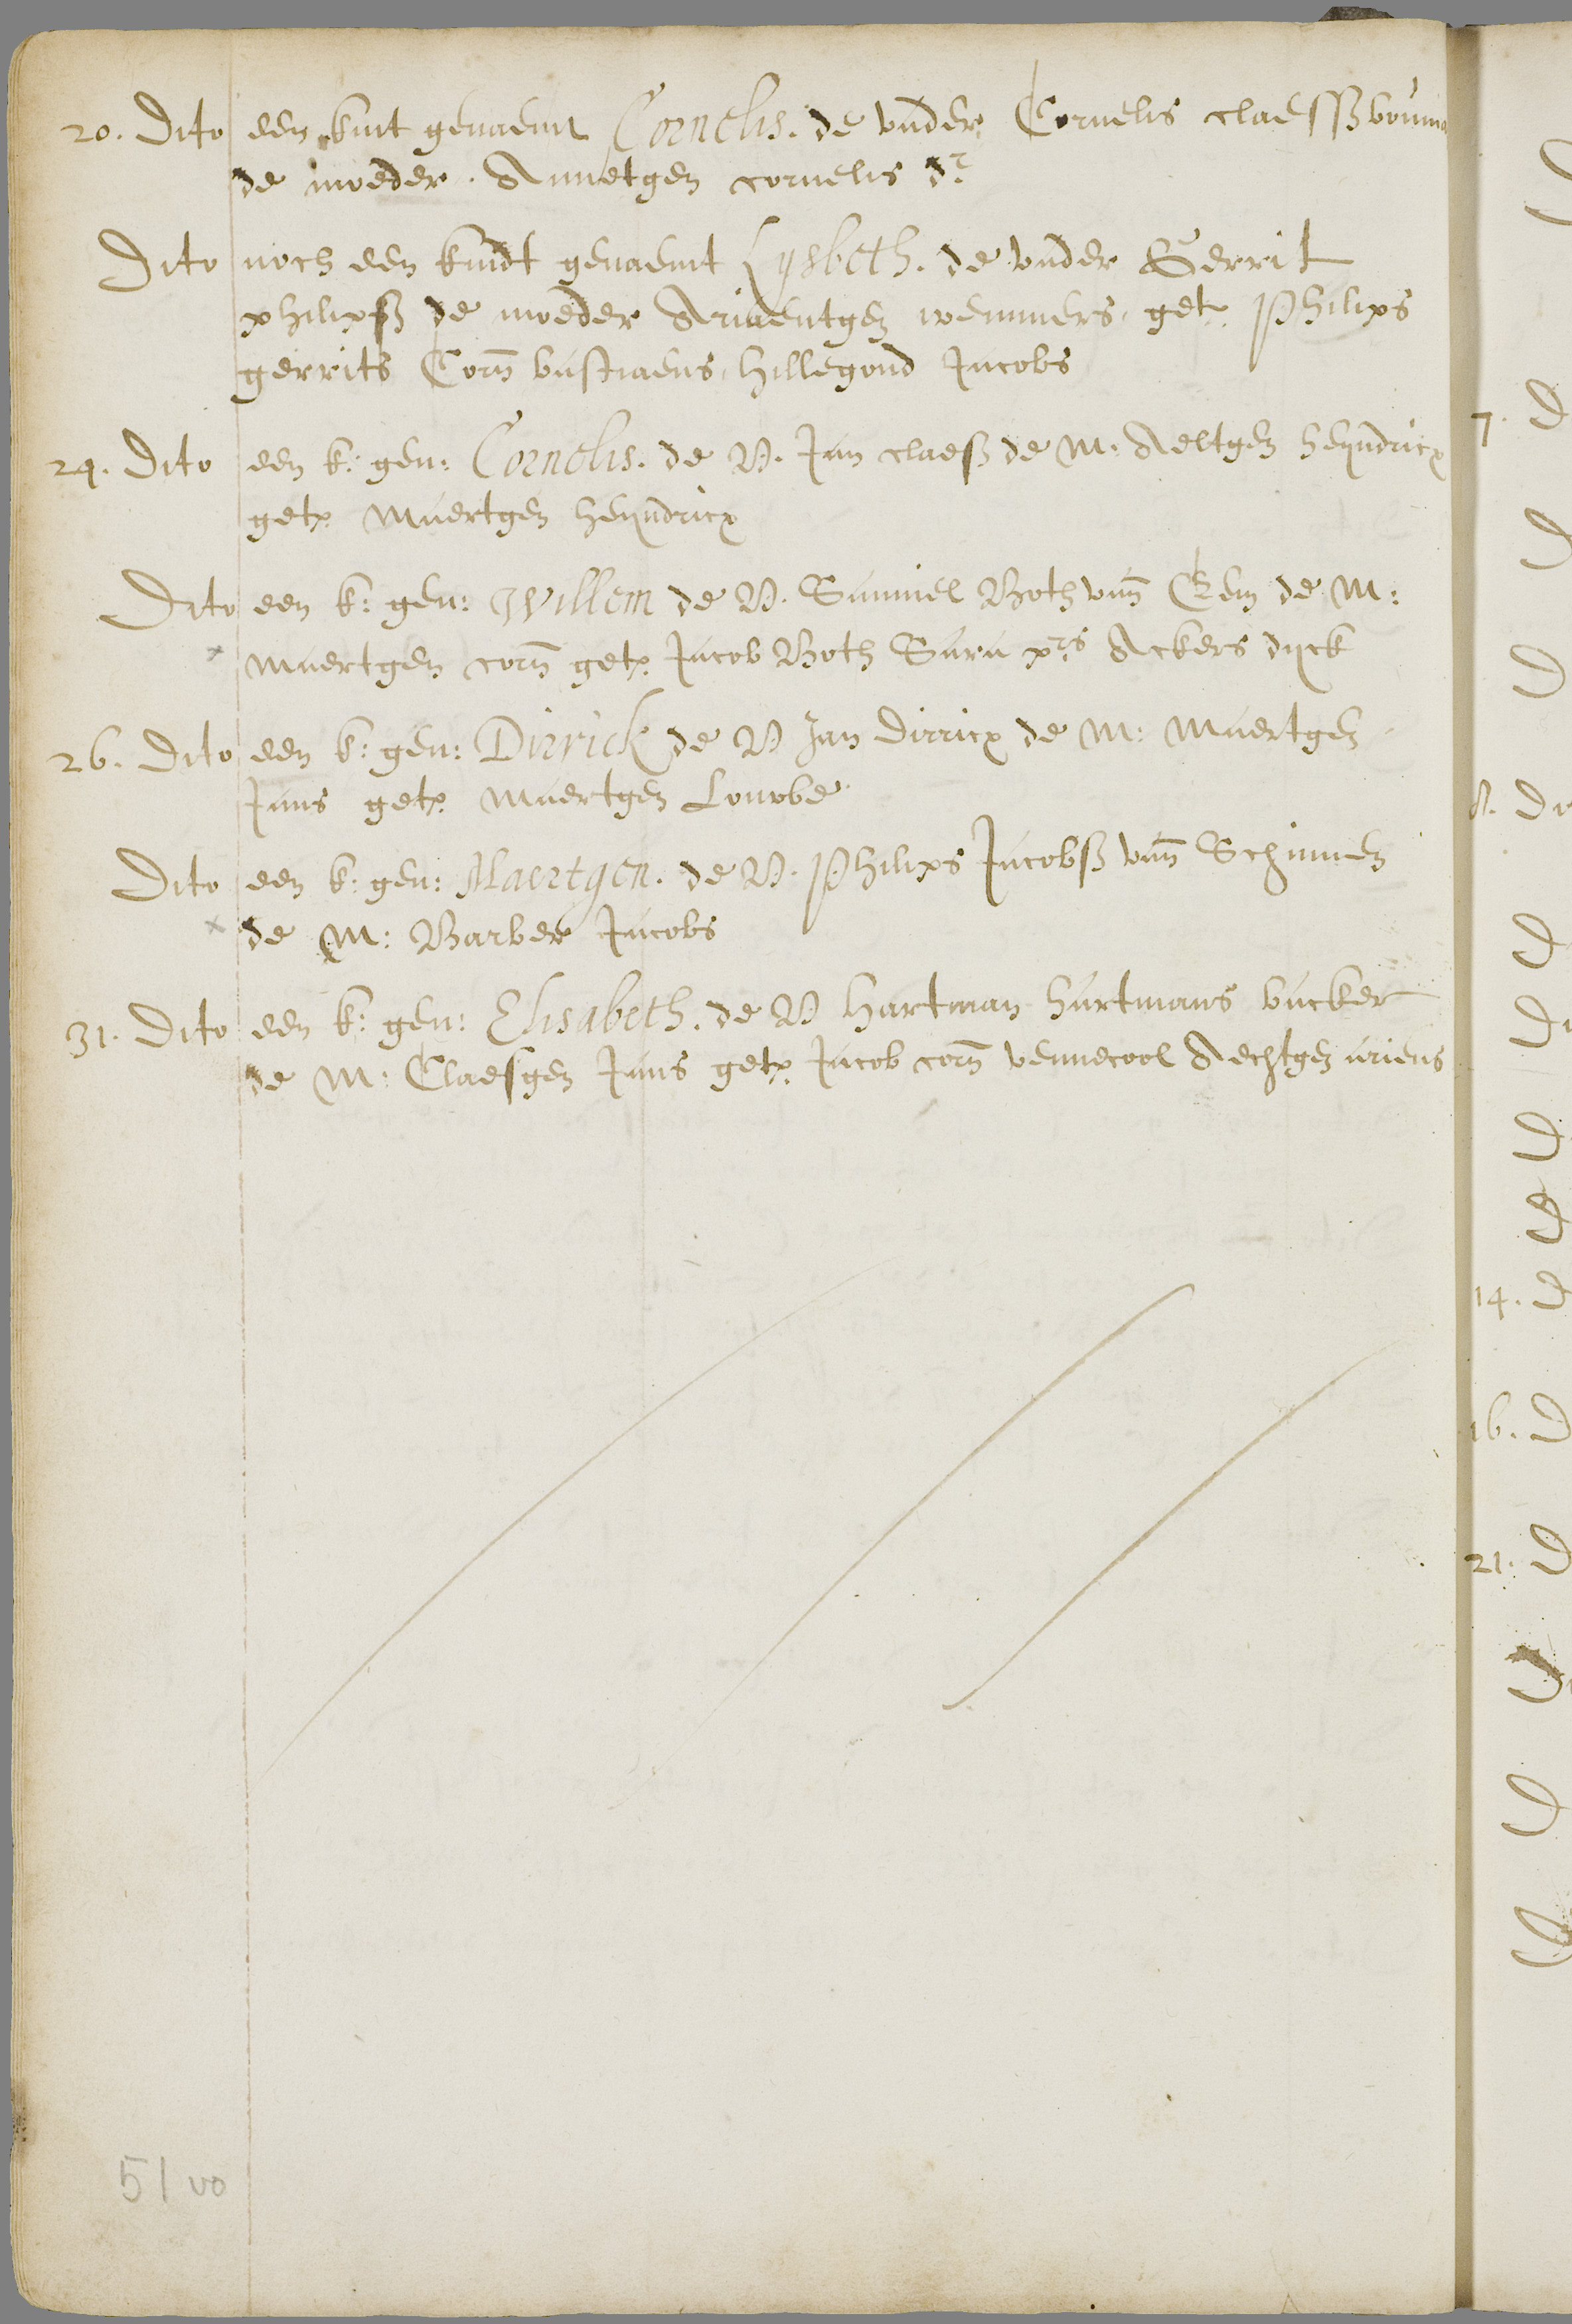 20. Dito een kint genaemt Cornelis. de vader Cornelis claessz bouma
de moeder. Annetgen cornelis dr
Dito noch een kindt genaemt Lysbeth. de vader Gerrit
philipsz de moeder Ariaentgen wemmers, get. Philips
gerrits Corn bastiaens, hillegond Jacobs
24. Dito een k: gen: Cornelis. de V. Jan claesz de M: Aeltgen heyndricx
get. Maertgen heyndricx
Dito een k: gen: Willem de V. Samuel Both van Eem de M:
Maertgen corn get. Jacob Both Sara prs Ackers dyck
26. Dito een k: gen: Dirrick de V Jan dirricx de M: Maertgen
Jans get. Maertgen Louwbe
Dito een k: gen: Maertgen. de V. Philips Jacobsz van Schinnen
de M: Barber Jacobs
31. Dito een k: gen: Elisabeth. de V Hartman hartmans backer
de M: Claesgen Jans get. Jacob corn vennecool Aechtgen ariens
51 vo
7. D
D
D
8. D
D
D
D
D
14. D
16. D
21. D
D
D